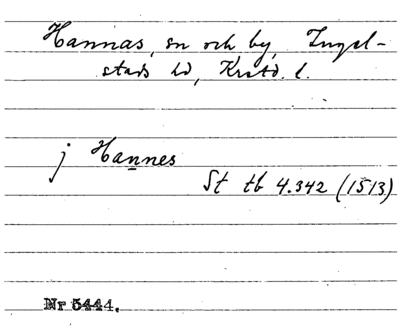 Hannas, sn och by, Ingel-
stads hd, Krstd. l.
j Hannes
St tb 4.342 (1513)
Nr 5444.